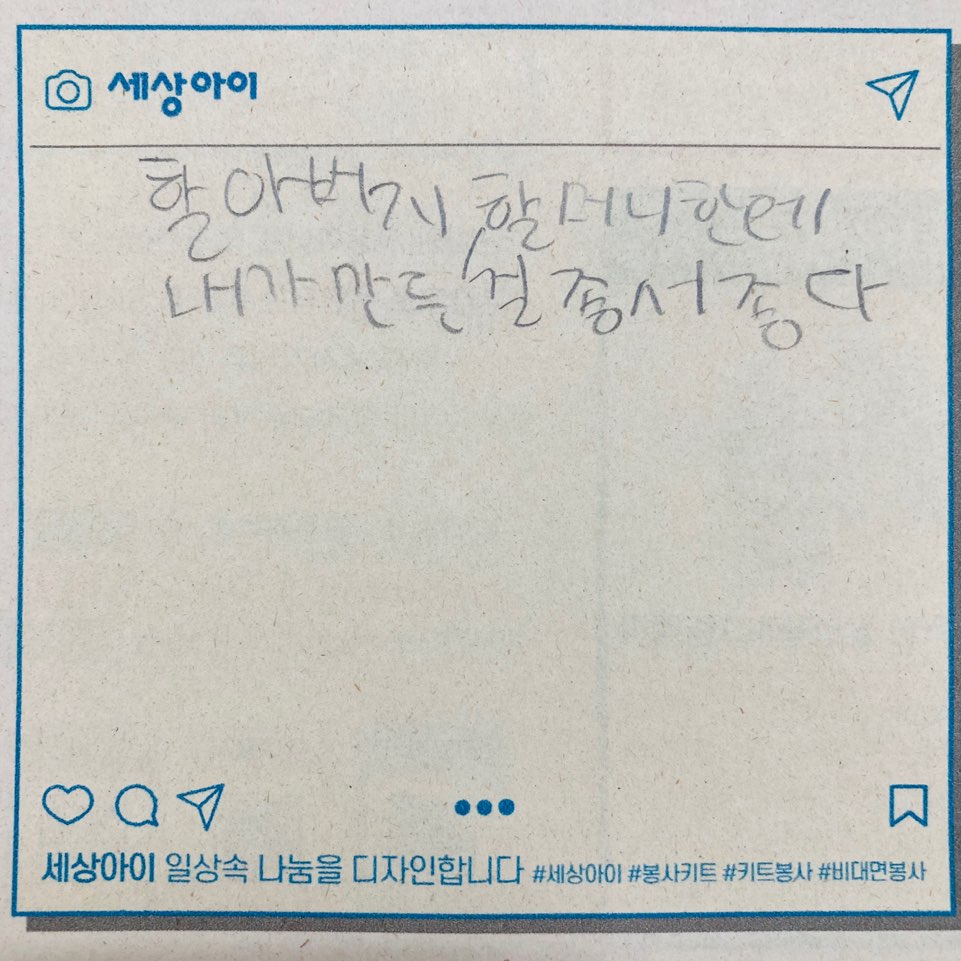 세상아이
할아버지 할머니한테
내가 만든 걸 좋서 좋다
세상아이 일상속 나눔을 디자인합니다 #세상아이 #봉사키트 #키트봉사 #비대면봉사